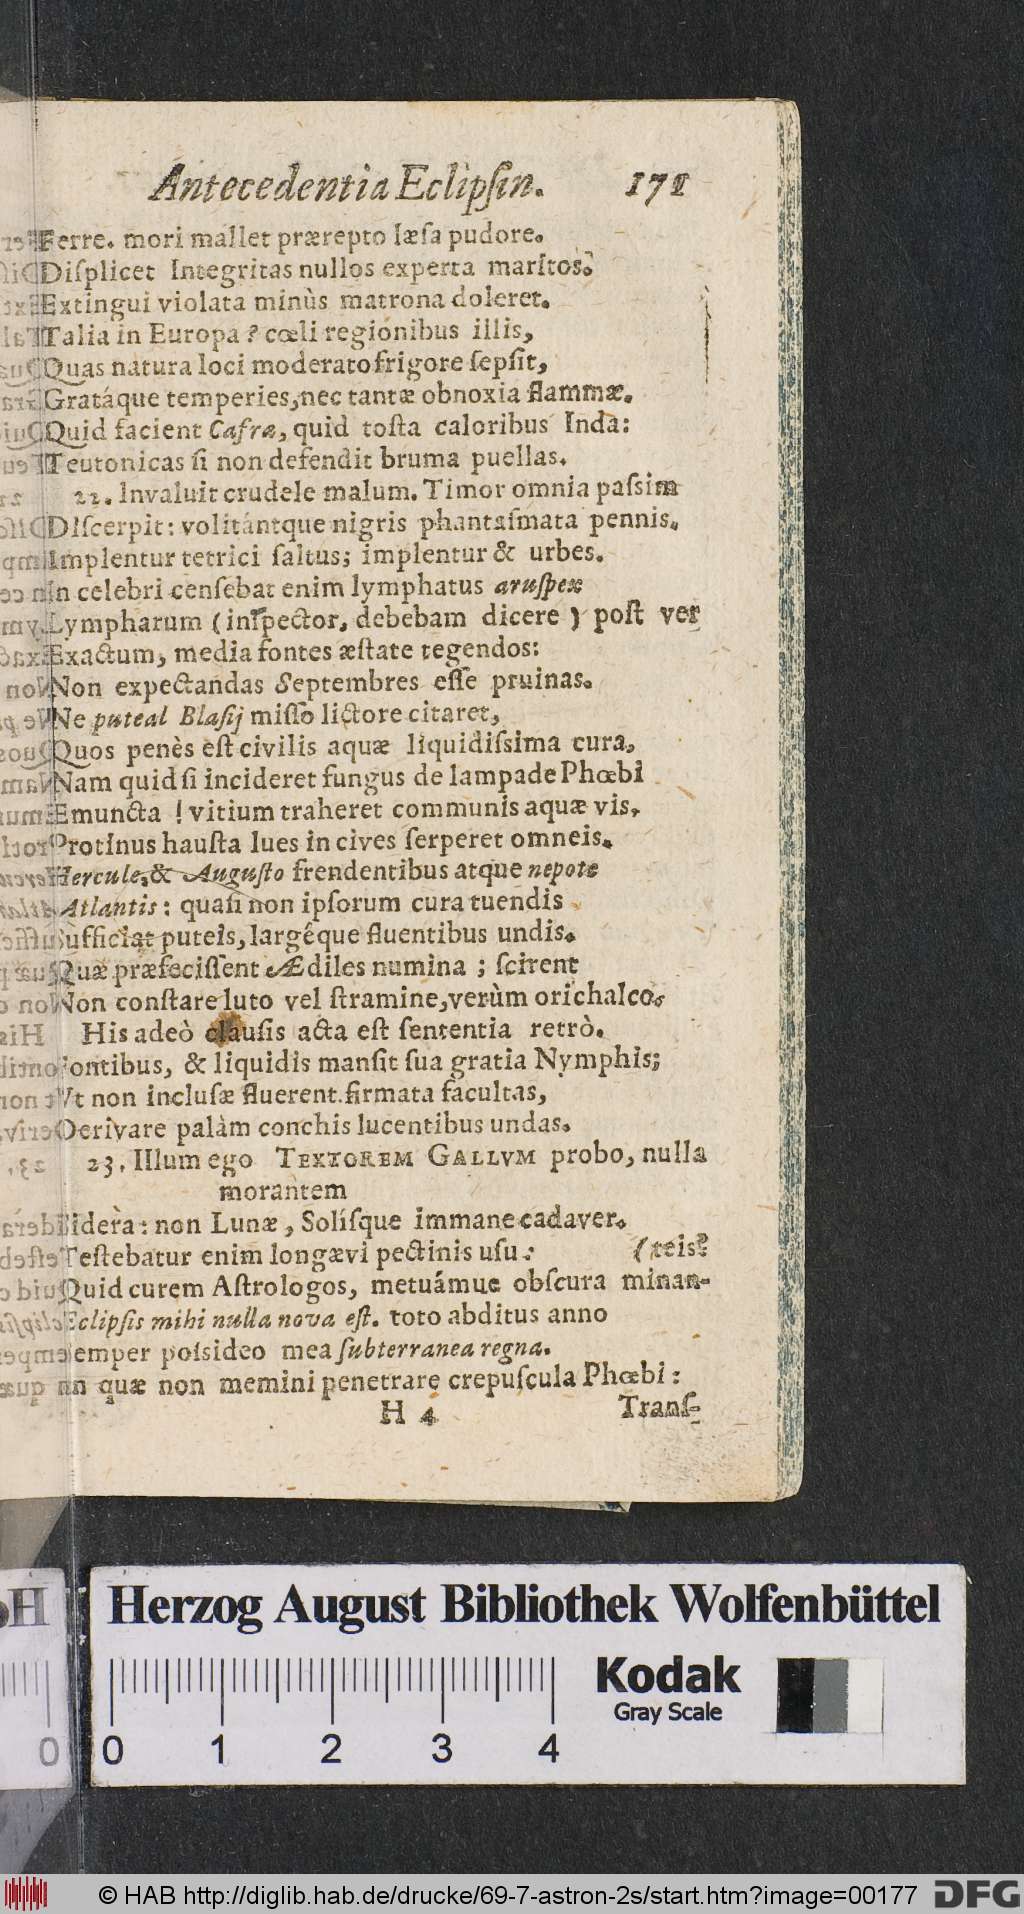 Antecedentia Eclipsin. 171
Ferre. mori mallet prærepto læſa pudore.
Diſplicet Integritas nullos experta maritos?
Extingui violata minùs matrona doleret.
Talia in Europa? cœli regionibus illis,
Quas natura loci moderato frigore ſepſit,
Gratáque temperies, nec tantæ obnoxia flammæ.
Quid facient Cafræ, quid toſta caloribus Inda:
Teutonicas ſi non defendit bruma puellas.
22. Invaluit crudele malum. Timor omnia paſsim
Diſcerpit: volitántque nigris phantaſmata pennis.
Implentur tetrici ſaltus; implentur & urbes.
In celebri cenſebat enim lymphatus aruſpex
Lympharum (inſpector, debebam dicere) poſt ver
Exactum, media fontes æſtate tegendos:
Non expectandas Septembres eſſe pruinas.
Ne puteal Blaſij miſſo lictore citaret,
Quos penès eſt civilis aquæ liquidiſsima cura,
Nam quid ſi incideret fungus de lampade Phœbi
Emuncta! vitium traheret communis aquæ vis,
Protinus hauſta lues in cives ſerperet omneis.
Hercule, & Auguſto frendentibus atque nepote
Atlantis: quaſi non ipſorum cura tuendis
Sufficiat puteis, largéque fluentibus undis.
Quæ præfeciſſent Ædiles numina; ſcirent
Non conſtare luto vel ſtramine, verùm orichalco.
His adeò clauſis acta eſt ſententia retrò.
Fontibus, & liquidis manſit ſua gratia Nymphis;
Vt non incluſæ fluerent. firmata facultas,
Derivare palàm conchis lucentibus undas.
23. Illum ego TEXTOREM GALLVM probo, nulla
morantem
Sidera: non Lunæ, Solíſque immane cadaver.
Teſtebatur enim longævi pectinis uſu: (teis?
Quid curem Aſtrologos, metuámue obſcura minan-
Eclipſis mihi nulla nova eſt. toto abditus anno
Semper poſsideo mea ſubterranea regna.
In quæ non memini penetrare crepuſcula Phœbi:
H 4 Tranſ-
Herzog August Bibliothek Wolfenbüttel
Kodak
Gray Scale
0 0 1 2 3 4
© HAB http://diglib.hab.de/drucke/69-7-astron-2s/start.htm?image=00177 DFG